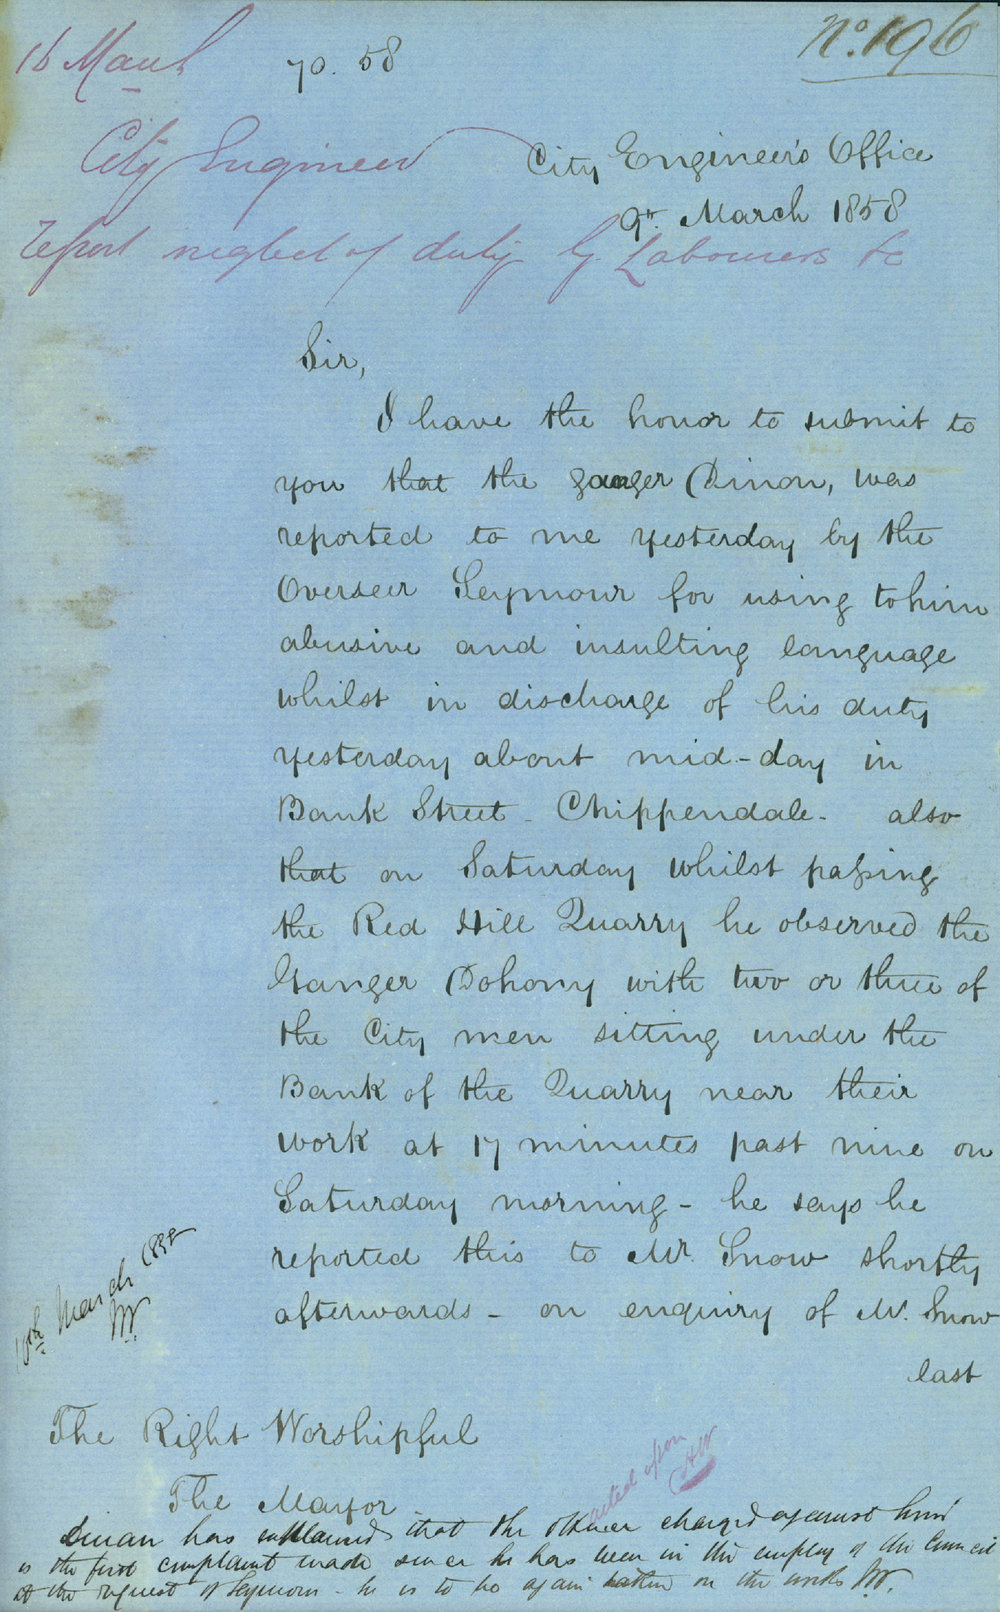 No. 196
16 March
70. 58
City Engineer
City Engineer's Office
9th. March 1858
report neglect of duty by Labourers &c
Sir,
I have the honor to submit to
you that the ganger Dinon, was
reported to me yesterday by the
Overseer Seymour for using to him
abusive and insulting language
whilst in discharge of his duty
yesterday about mid-day in
Bank Street - Chippendale - also
that on Saturday whilst paſsing
the Red Hill Quarry he observed the
Ganger Dohony with two or three of
the City men sitting under the
Bank of the Quarry near their
work at 17 minutes past nine on
Saturday morning - he says he
reported this to Mr. Snow shortly
afterwards - on enquiry of Mr. Snow
last
10th March 1858
The Right Worshipful
The Mayor
acted upon
Dinan has explained that the offence charged against him
is the first complaint made since he has been in the employ of the Council
at the request of Seymour - he is to be again taken on the works